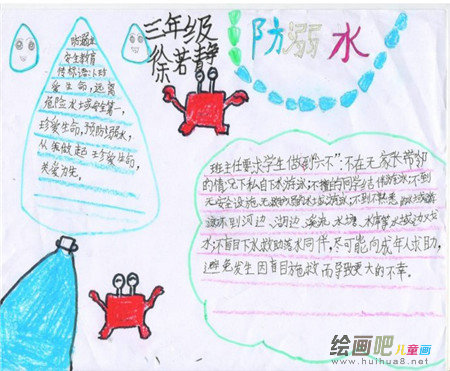 三年级
徐若静
防溺水
防溺水
安全教育
传标语:1.珍
爱生命,远离
危险水域安全第一,
珍爱生命,预防溺水,
从我做起 珍爱生命,
关爱为先,
班主任要求学生做到"不":不在无家长带领
的情况下私自下水游泳;不擅自与同学结伴游泳;不到
无安全设施、无救援
游泳 不到河边、湖边、溪流、水塘、
水;不盲目下水救助落水同伴,尽可能向成年人求助,
避免发生因盲目施救而导致更大的不幸.
绘画吧儿童画
www.huihua8.net